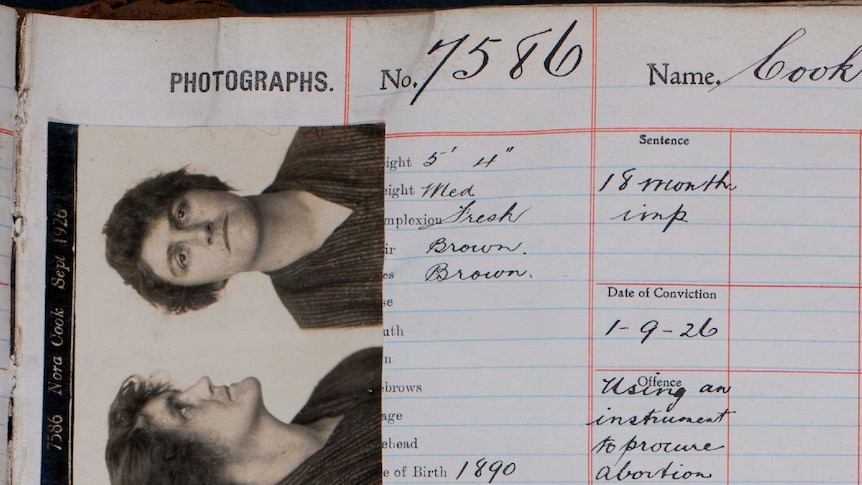 PHOTOGRAPHS.
No. 7586
Name. Cook
7586 Nora Cook Sept 1926
ight 5' 4"
eight Med
mplexion Fresh
ir Brown.
es Brown.
se
uth
n
ebrows
age
ehead
e of Birth 1890
Sentence
18 months
imp
Date of Conviction
1-9-26
Offence
Using an
instrument
to procure
abortion